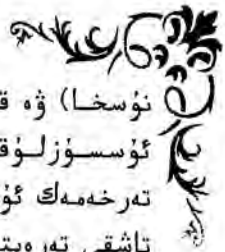 نۇسخا) ۋە ق
ئۇسسۇزلۇق
تەرخەمەك ئۇ
تاشقى تەرىپتى